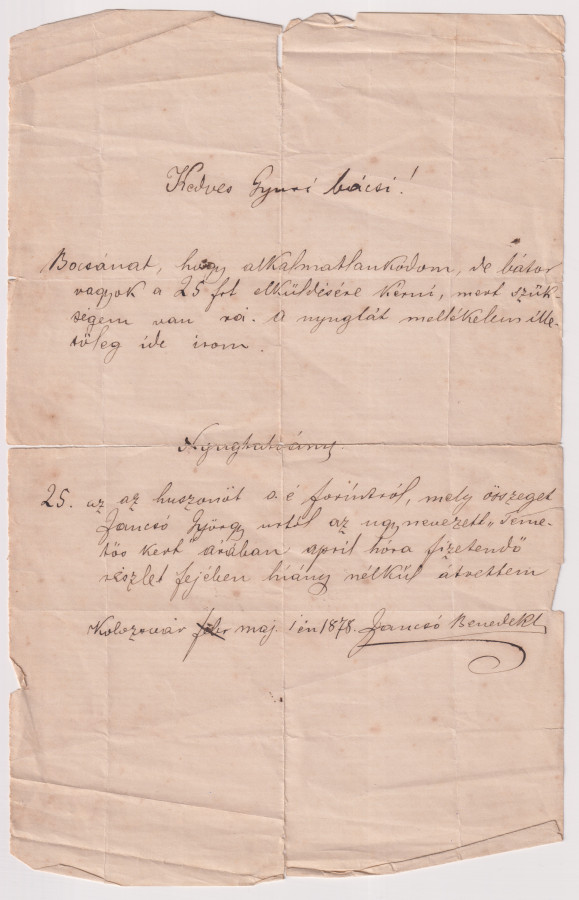 Kedves Gyuri bácsi!
Bocsánat, hogy alkalmatlankodom, de bátor
vagyok a 25 frt elküldésére kérni, mert szük-
ségem van rá. A nyugtát mellékelem ille-
tőleg ide irom.
Nyugtatvány.
25. az az huszonöt o. é forintról, mely összeget
Jancsó György urtól az ugynevezett „Teme-
tős kert" árában april hóra fizetendő
részlet fejében hiány nélkül átvettem
Kolozsvár maj. 1 én 1878. Jancsó Benedek